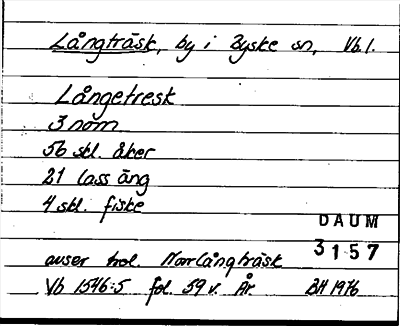 Långträsk, by i Byske sn, Vb l.
Långetresk
3 nom
56 skl. åker
21 lass äng
4 skl. fiske
DAUM
3157
avser trol. Norrlångträsk
Vb 1546:5 fol. 59 v. År. BH 1976